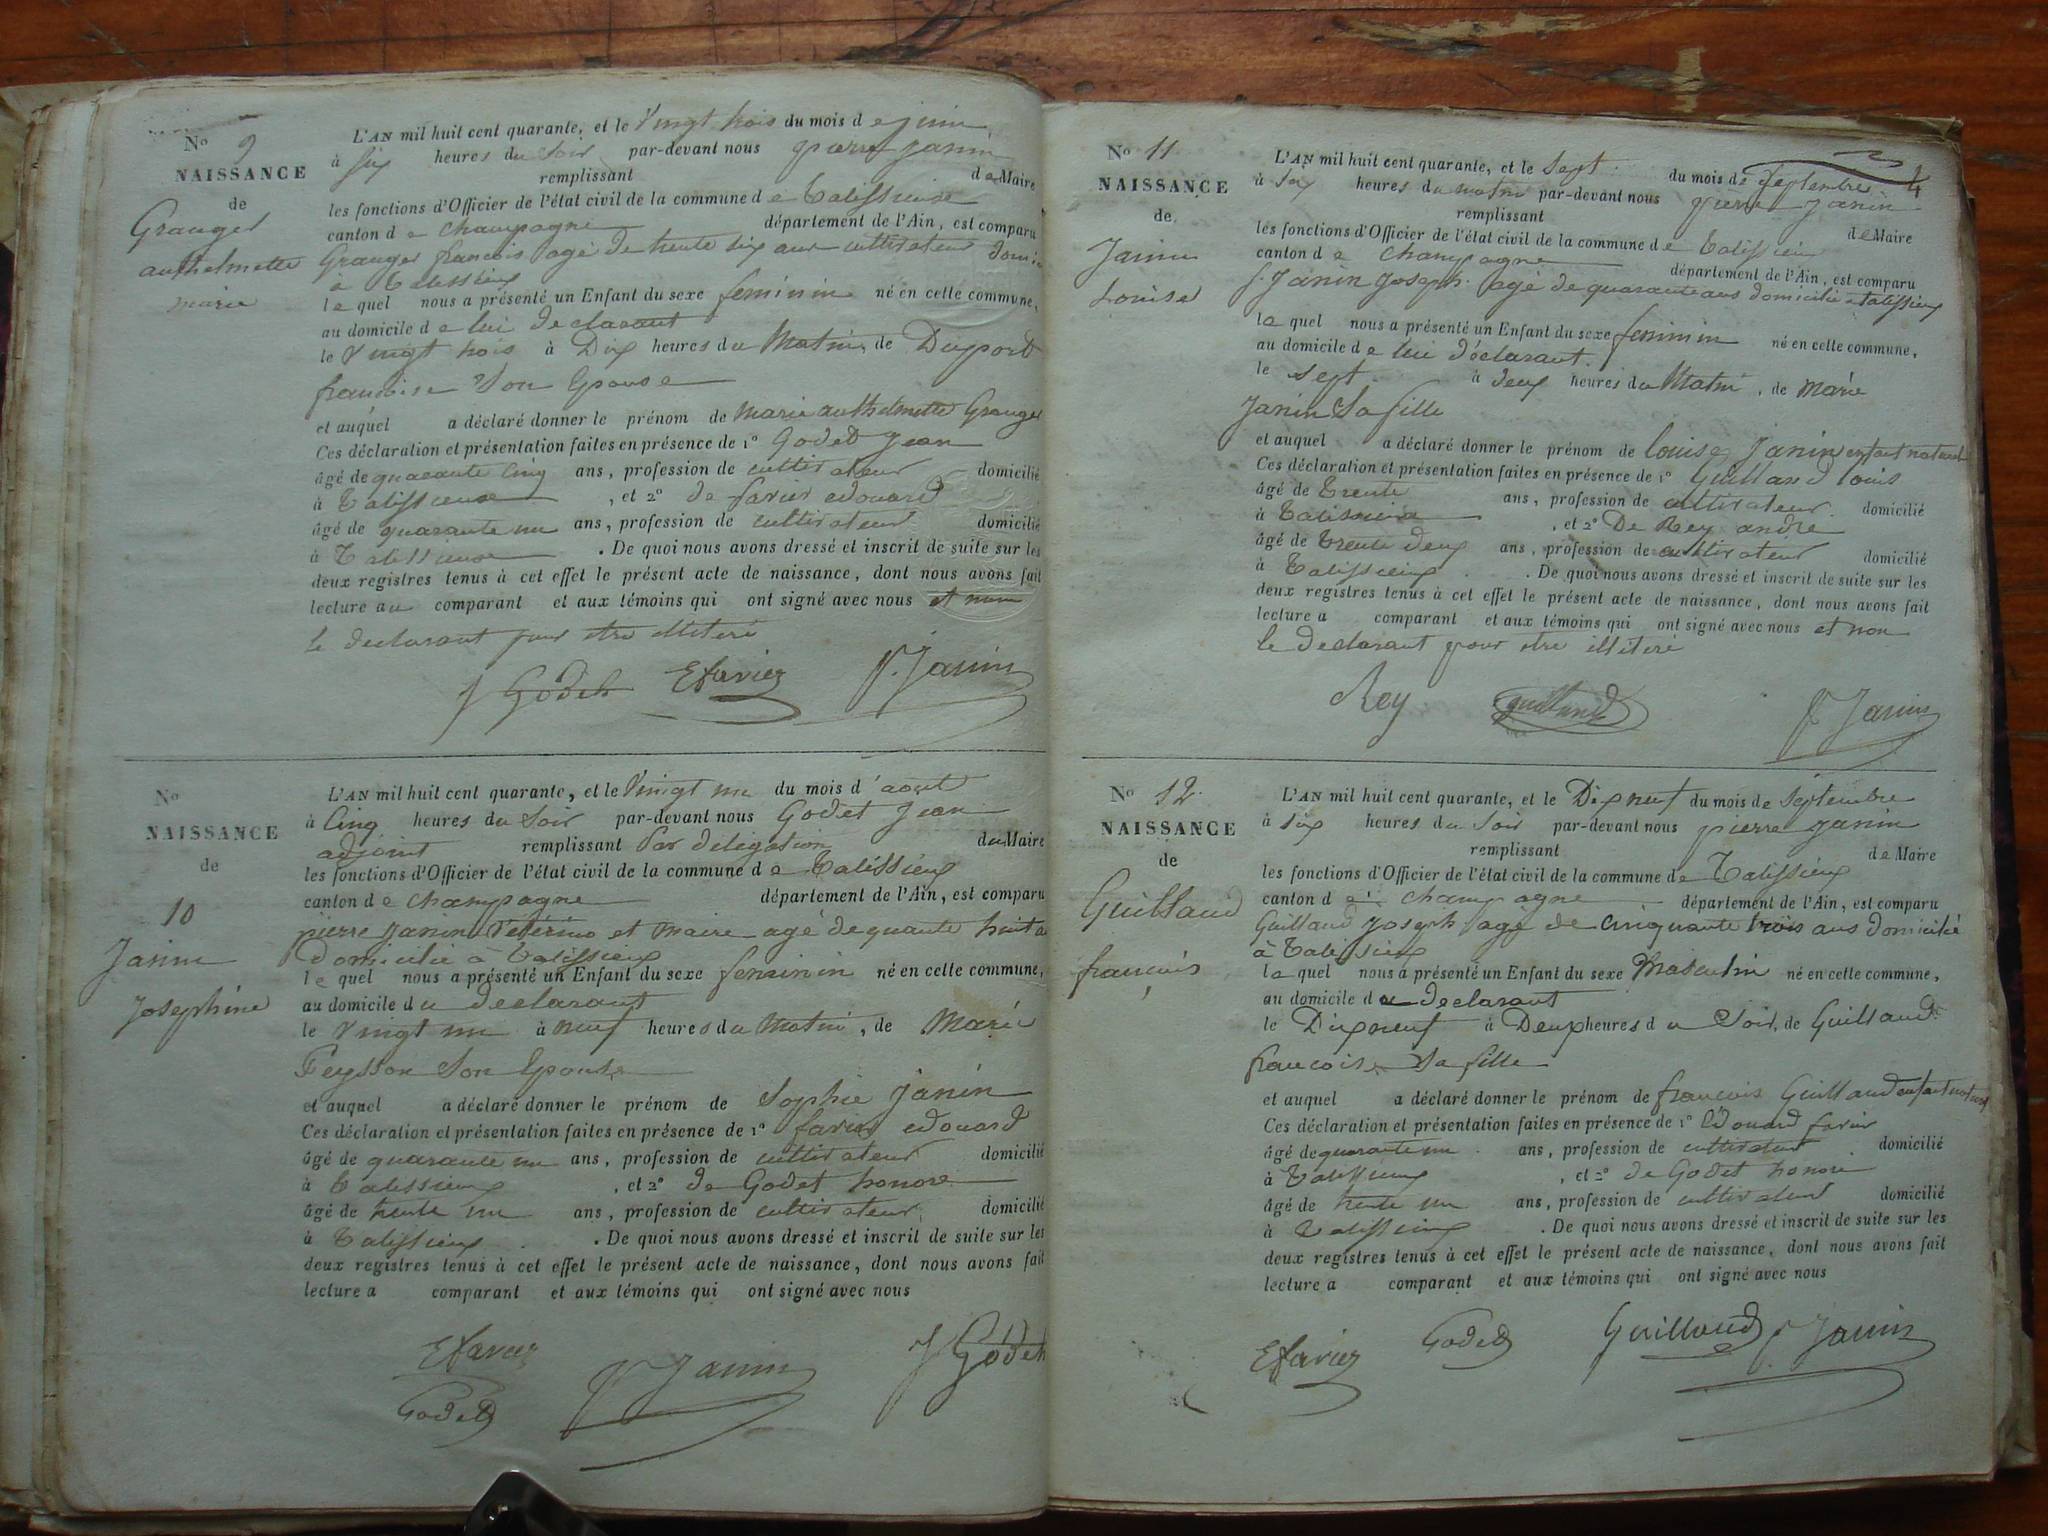 No 9
NAISSANCE
de
Granger
anthelmette
marie
L'AN mil huit cent quarante, et le Vingt trois du mois de juin
à six heures du Soir par-devant nous pierre janin
remplissant de Maire
les fonctions d'Officier de l'état civil de la commune de Talissieux
canton de champagne département de l'Ain, est comparu
Granger francois agé de trente six ans cultivateur
à Talissieux
le quel nous a présenté un Enfant du sexe feminin né en cette commune,
au domicile de lui declarant
le Vingt trois à Dix heures du Matin, de Duport
francoise Son Epouse
et auquel a déclaré donner le prénom de marie anthelmette Granger
Ces déclaration et présentation faites en présence de 1º Godet Jean
âgé de quarante cinq ans, profession de cultivateur domicilié
à Talissieux, et 2º de favier edouard
âgé de quarante un ans, profession de cultivateur domicilié
à Talissieux. De quoi nous avons dressé et inscrit de suite sur les
deux registres tenus à cet effet le présent acte de naissance, dont nous avons fait
lecture au comparant et aux témoins qui ont signé avec nous et non
le declarant pour etre illiteré
J Godet E favier P. Janin
No
NAISSANCE
de
10
Janin
Josephine
L'AN mil huit cent quarante, et le Vingt un du mois d'aout
à Cinq heures du Soir par-devant nous Godet Jean
adjoint remplissant Par délégation du Maire
les fonctions d'Officier de l'état civil de la commune de Talissieux
canton de champagne département de l'Ain, est comparu
pierre janin et maire agé de quante huit
Domicilié à Talissieux
le quel nous a présenté un Enfant du sexe feminin né en cette commune,
au domicile du declarant
le Vingt un à neuf heures du Matin, de Marie
Peysson Son Epouse
et auquel a déclaré donner le prénom de Sophie Janin
Ces déclaration et présentation faites en présence de 1º favier edouard
âgé de quarante un ans, profession de cultivateur domicilié
à Talissieux, et 2º de Godet honoré
âgé de trente un ans, profession de cultivateur domicilié
à Talissieux. De quoi nous avons dressé et inscrit de suite sur les
deux registres tenus à cet effet le présent acte de naissance, dont nous avons fait
lecture a comparant et aux témoins qui ont signé avec nous
E favier P Janin J Godet
Godet
4
No 11
NAISSANCE
de
Janin
Louise
L'AN mil huit cent quarante, et le Sept du mois de Septembre
à six heures du matin par-devant nous pierre Janin
remplissant de Maire
les fonctions d'Officier de l'état civil de la commune de Talissieux
canton de champagne département de l'Ain, est comparu
Janin Joseph agé de quarante ans domicilié à Talissieux
le quel nous a présenté un Enfant du sexe feminin né en cette commune,
au domicile de lui déclarant.
le sept à deux heures du Matin, de Marie
Janin Sa fille
et auquel a déclaré donner le prénom de louise Janin enfant naturel
Ces déclaration et présentation faites en présence de 1º Guilland louis
âgé de trente ans, profession de cultivateur domicilié
à Talissieux, et 2º De Rey andré
âgé de trente deux ans, profession de cultivateur domicilié
à Talissieux. De quoi nous avons dressé et inscrit de suite sur les
deux registres tenus à cet effet le présent acte de naissance, dont nous avons fait
lecture a comparant et aux témoins qui ont signé avec nous et non
le declarant pour etre illiteré
Rey guilland P Janin
No 12
NAISSANCE
de
Guilland
francois
L'AN mil huit cent quarante, et le Dix neuf du mois de Septembre
à six heures du Soir par-devant nous pierre janin
remplissant de Maire
les fonctions d'Officier de l'état civil de la commune de Talissieux
canton de champagne département de l'Ain, est comparu
Guilland Joseph agé de cinquante trois ans Domicilié
à Talissieux
le quel nous a présenté un Enfant du sexe Masculin né en cette commune,
au domicile du declarant
le Dix neuf à Deux heures du Soir, de Guilland
francoise Sa fille
et auquel a déclaré donner le prénom de francois Guilland enfant naturel
Ces déclaration et présentation faites en présence de 1º Edouard favier
âgé de quarante un ans, profession de cultivateur domicilié
à Talissieux, et 2º de Godet honoré
âgé de trente un ans, profession de cultivateur domicilié
à Talissieux. De quoi nous avons dressé et inscrit de suite sur les
deux registres tenus à cet effet le présent acte de naissance, dont nous avons fait
lecture a comparant et aux témoins qui ont signé avec nous
E favier Godet Guilland P. Janin